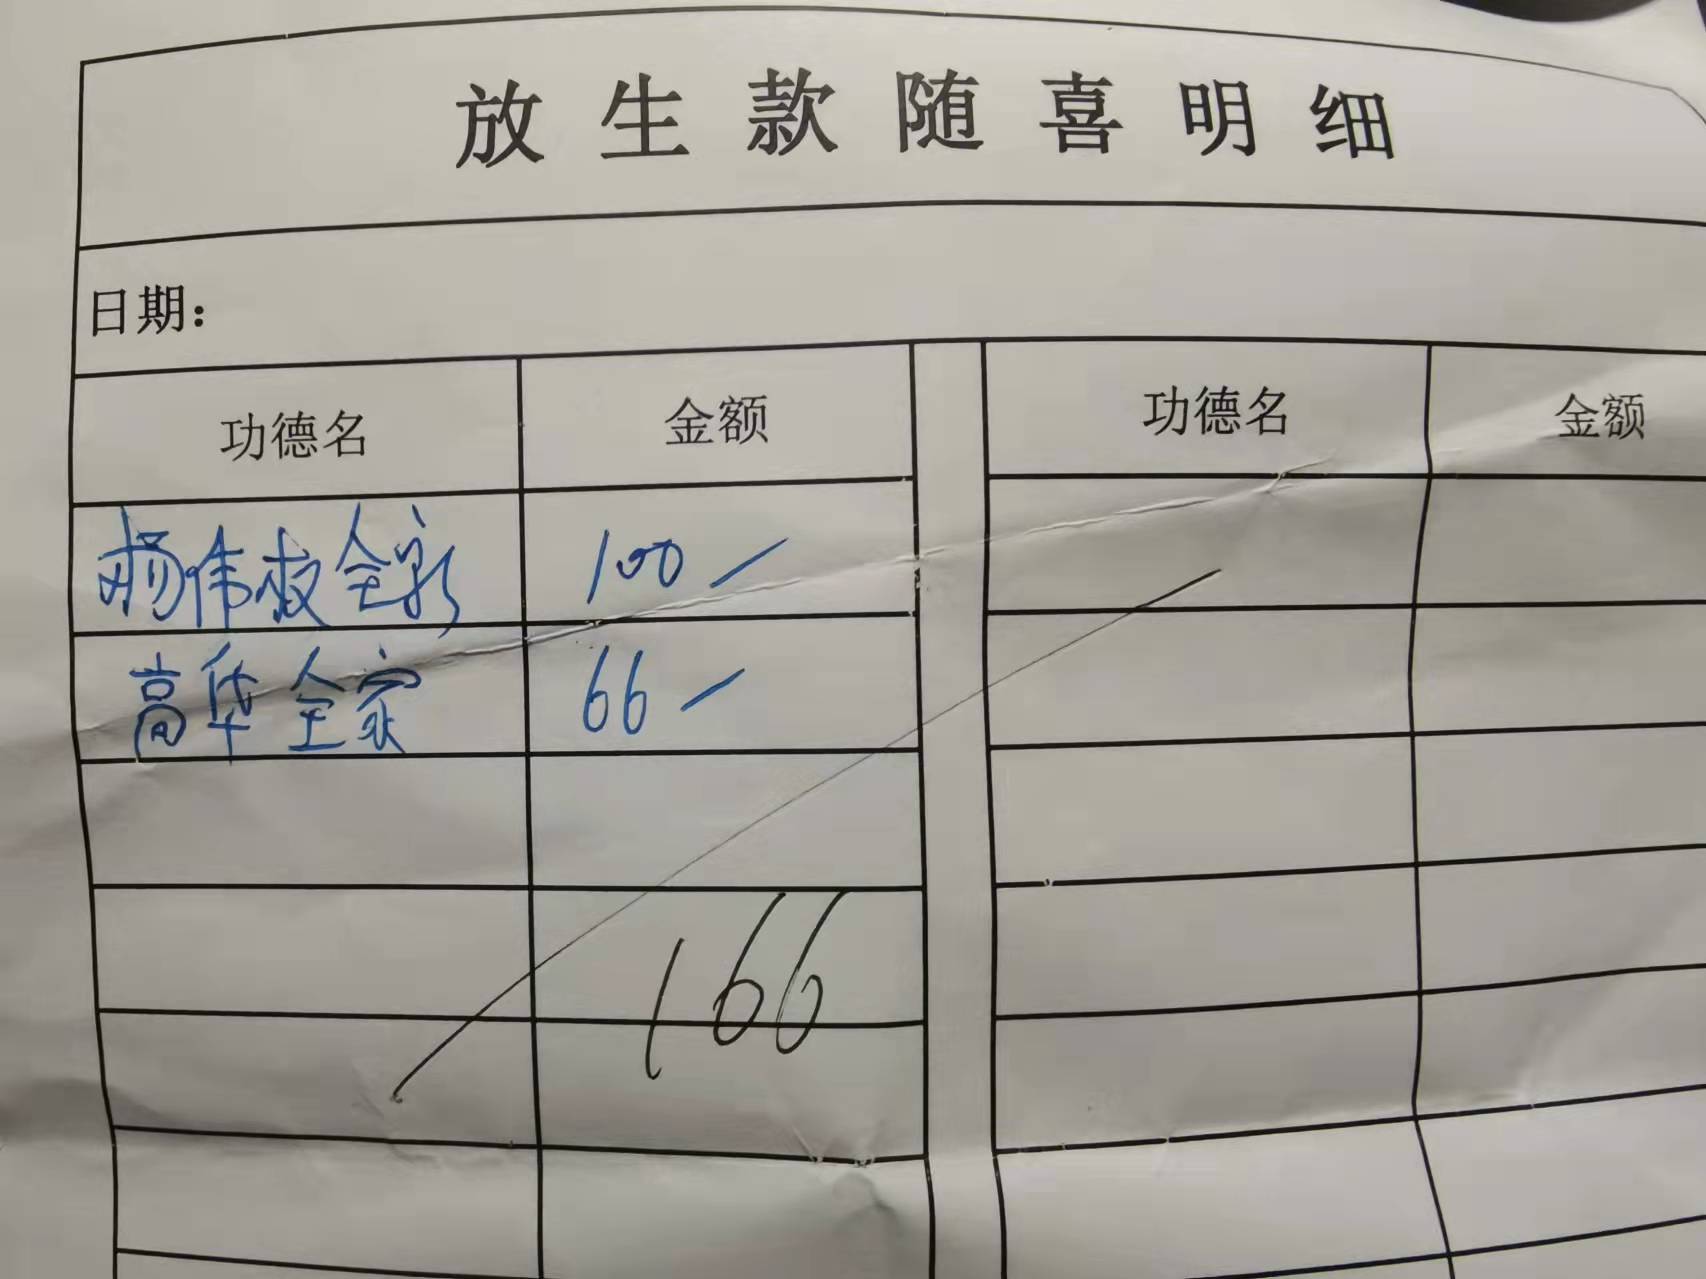 放生款随喜明细
日期：
功德名 金额 功德名 金额
杨伟 全家 100
高华全家 66
166